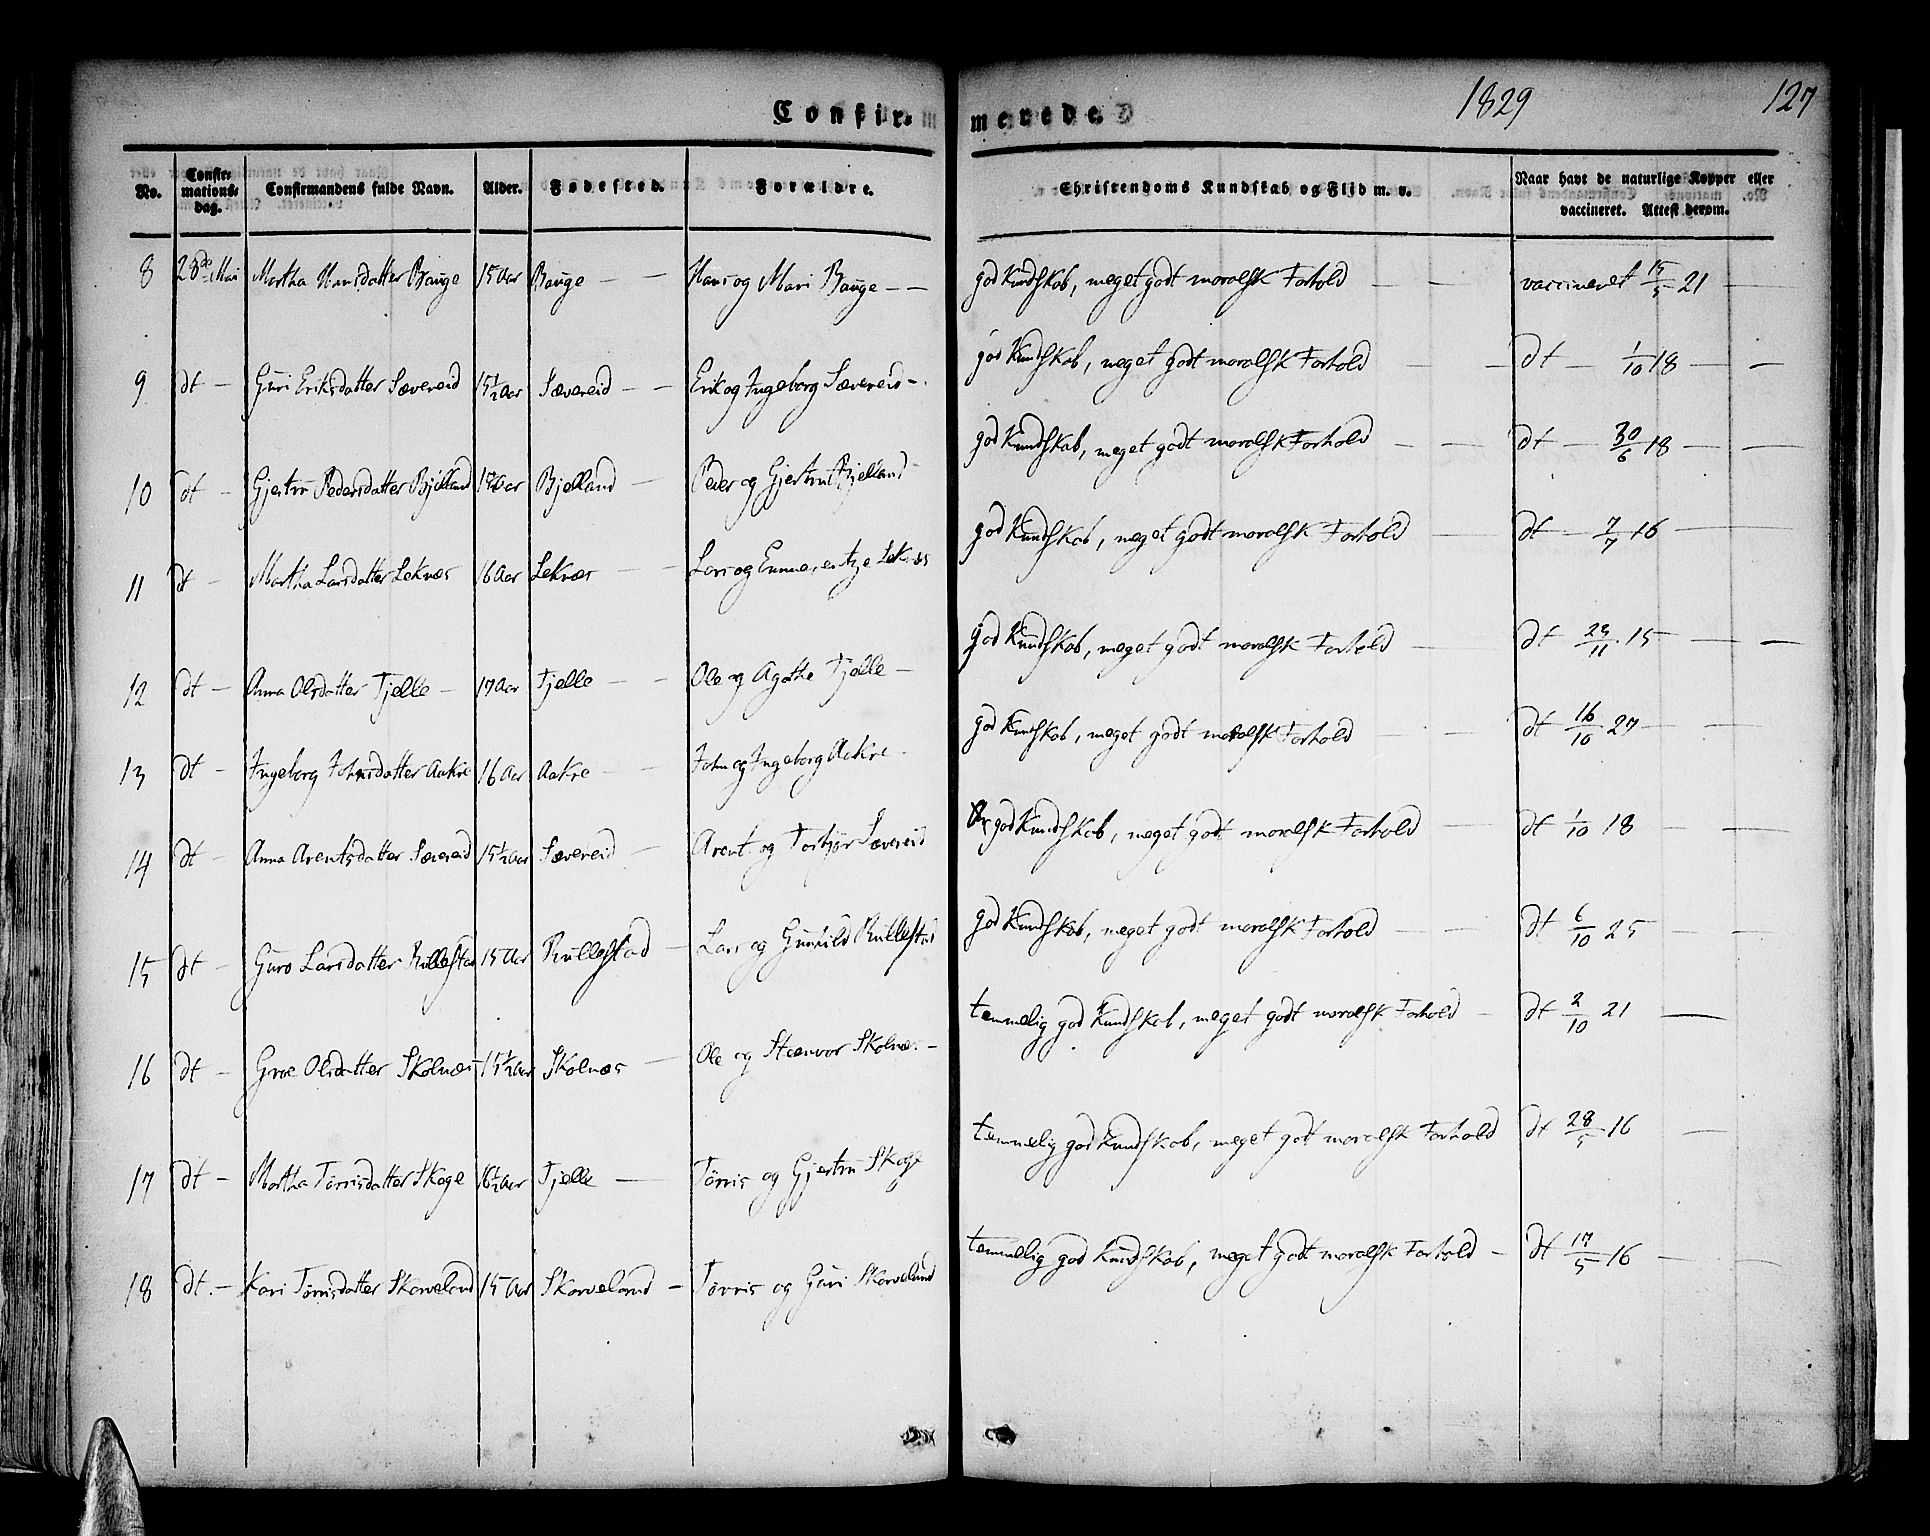 Confir- merede.
1829
127
No. Confirmationsdag. Confirmandens fulde Navn. Alder. Fødested. Forældre. Christendoms Kundskab og Flid m. v. Naar havt de naturlige Kopper eller vaccineret. Attest derom.
8 28de Mai Martha Hansdatter Bauge 15 Aar Bauge — — Hans og Mari Bauge — — god Kundskab, meget godt moralsk Forhold — — vaccineret 15/5 21 —
9 dt — Guri Eriksdatter Sævereid 15 1/2 Aar Sævereid — — Erik og Ingeborg Sævereid — god Kundskab, meget godt moralsk Forhold — — dt — 1/10 18 — —
10 dt — Gjertru Pedersdatter Bjelland Aar Bjelland — Peder og Gjertru Bjelland — god Kundskab, meget godt moralsk Forhold — — dt — 30/6 18 — —
11 dt — Martha Larsdatter Leknes 16 Aar Leknes — — Lars og Leknes god Kundskab, meget godt moralsk Forhold — dt — 7/7 16 —
12 dt — Anna Olsdatter Tjelle — 17 Aar Tjelle — — Ole og Agathe Tjelle — god Kundskab, meget godt moralsk Forhold — dt 23/11 15 — —
13 dt — Ingeborg Johnsdatter Aakre 16 Aar Aakre — John og Ingeborg Aakre — god Kundskab, meget godt moralsk Forhold — — dt 16/10 27 — —
14 dt — Anna Arentsdatter Sævereid 15 1/2 Aar Sævereid — Arent og Torbjør Sævereid god Kundskab, meget godt moralsk Forhold — dt 1/10 18 — —
15 dt — Guro Larsdatter Rullestad 15 Aar Rullestad — Lars og Gunhild Rullestad god Kundskab, meget godt moralsk Forhold — — dt 6/10 25 — —
16 dt — Groe Olsdatter Skolnæs 15 1/2 Aar Skolnæs — Ole og Steenvor Skolnæs — temmelig god Kundskab, meget godt moralsk Forhold — dt 2/10 21 —
17 dt — Martha Tørrisdatter Skoge 16 1/2 Aar Tjelle — Tørris og Gjertru Skoge temmelig god Kundskab, meget godt moralsk Forhold dt 28/5 16 —
18 dt. — Kari Tørrisdatter Skorveland 15 Aar Skorveland — Tørris og Guri Skorveland temmelig god Kundskab, meget godt moralsk Forhold — dt 17/5 16 — —